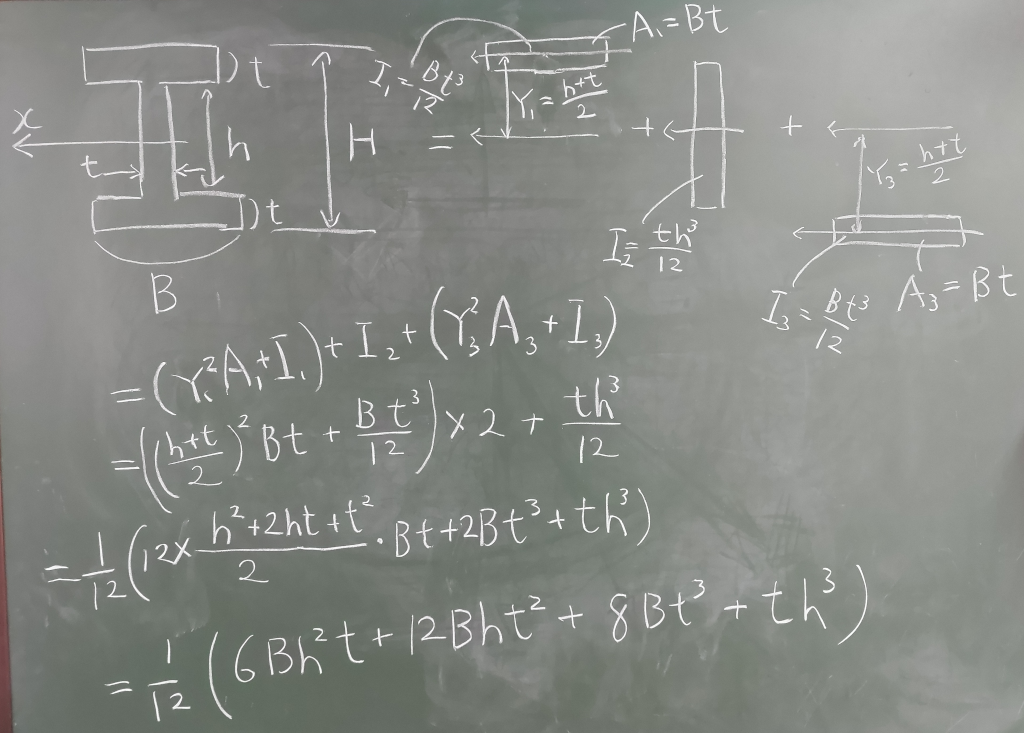 A₁ = Bt
t
I₁ = Bt³/12
Y₁ = (h+t)/2
x
t
h
H
=
+
+
Y₃ = (h+t)/2
t
B
I₂ = th³/12
I₃ = Bt³/12
A₃ = Bt
= (Y₁²A₁ + I₁) + I₂ + (Y₃²A₃ + I₃)
= (((h+t)/2)² Bt + Bt³/12) × 2 + th³/12
= 1/12 (12 × (h²+2ht+t²)/2 · Bt + 2Bt³ + th³)
= 1/12 (6Bh²t + 12Bht² + 8Bt³ + th³)